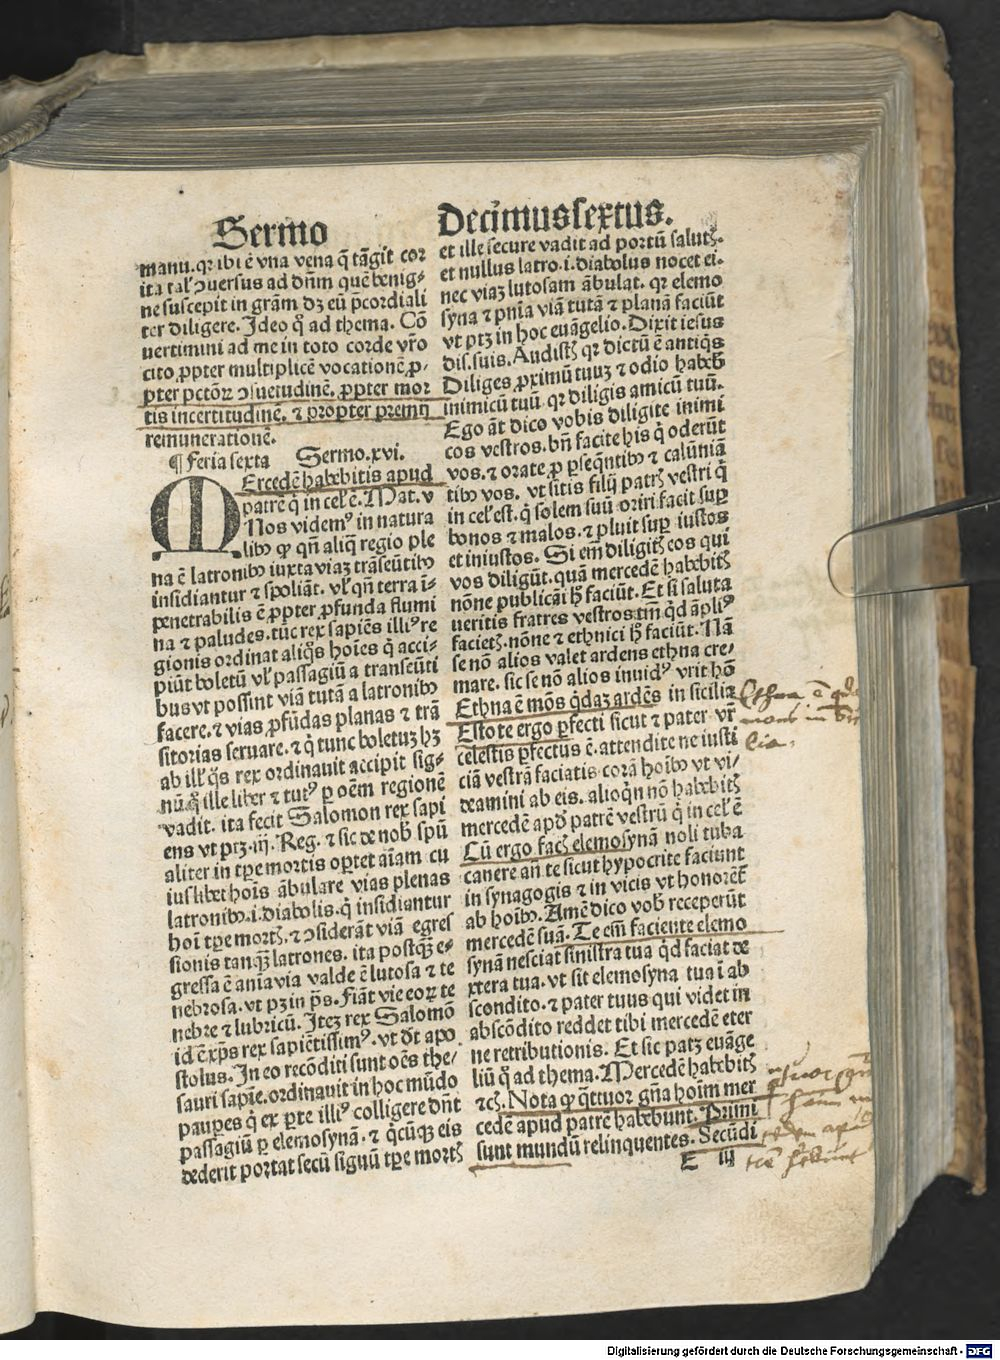 Sermo
manu. qꝛ ibi ē vna vena q̄ tāgit coꝛ
ita talꝭ ꝯuersus ad dn̄m quē benig⸗
ne suscepit in gr̄am dꝫ eū p̄coꝛdiali
ter diligere. Ideo q̄ ad thema. Cō
uertimini ad me in toto coꝛde vr̄o
cito ꝓpter multiplicē vocationē ꝓ⸗
pter pctōꝝ ꝯsuetudinē. ꝓpter moꝛ
tis incertitudinē. ⁊ pꝛopter pꝛemij
remunerationē.
¶ Feria sexta Sermo.xvi.
MErcedē habebitis apud
patrē q̄ in cel̓ ē. Mat. v
Nos videmꝰ in natura
libꝰ ꝙ qn̄ aliq̄ regio ple
na ē latronibꝰ iuxta viaꝫ trāseūtibꝰ
insidiantur ⁊ spoliāt. vl̓ qn̄ terra ī⸗
penetrabilis ē ꝓpter ꝓfunda flumi
na ⁊ paludes. tūc rex sapiēs illiꝰ re
gionis oꝛdinat aliq̄s hoīes q̄ acci⸗
piūt boletū vl̓ passagiū a transeūti
bus vt possint viā tutā a latronibꝰ
facere. ⁊ vias ꝓfūdas planas ⁊ trā
sitoꝛias seruare. ⁊ q̄ tunc boletuꝫ hꝫ
ab ill̓ q̄s rex oꝛdinauit accipit sig⸗
nū q̄ ille liber ⁊ tutꝰ ꝑ oēm regionē
vadit. ita fecit Salomon rex sapi
ens vt ptꝫ.iij. Reg. ⁊ sic de nob̄ spū
aliter in tp̄e moꝛtis opꝛtet aīam cu
iuslibet hoīs ābulare vias plenas
latronibꝰ.i.diabolis. q̄ insidiantur
hoī tp̄e moꝛtꝭ. ⁊ ꝯsiderāt viā egres
sionis tanqꝫ latrones. ita postqꝫ e⸗
gressa ē anīa via valde ē lutosa ⁊ te
nebꝛosa. vt pꝫ in ps̄. Fiāt vie eoꝝ te
nebꝛe ⁊ lubꝛicū. Iteꝫ rex Salomō
id ē xp̄s rex sapiētissimꝰ. vt dt̄ apo
stolus. In eo recōditi sunt oēs the⸗
sauri sapīe. oꝛdinauit in hoc mūdo
pauꝑes q̄ ex ꝑte illiꝰ colligere dn̄t
passagiū ꝑ elemosynā. ⁊ q̄cūqꝫ eis
dederit poꝛtat secū signū tp̄e moꝛtꝭ
Decimussextus.
et ille secure vadit ad poꝛtū salutꝭ.
et nullus latro.i.diabolus nocet ei.
nec viaꝫ lutosam ābulat. qꝛ elemo
syna ⁊ pn̄ia viā tutā ⁊ planā faciūt
vt ptꝫ in hoc euāgelio. Dixit iesus
dis.suis. Audistꝭ qꝛ dictū ē antiq̄s
Diliges ꝓximū tuuꝫ ⁊ odio habeb̄
inimicū tuū. qꝛ diligis amicū tuū.
Ego āt dico vobis diligite inimi
cos vestros. bn̄ facite his q̄ oderūt
vos. ⁊ oꝛate ꝓ ꝑseq̄ntibꝰ ⁊ calūniā
tibꝰ vos. vt sitis filij patrꝭ vestri q̄
in cel̓ est. q̄ solem suū oꝛiri facit suꝑ
bonos ⁊ malos. ⁊ pluit suꝑ iustos
et iniustos. Si em̄ diligitꝭ eos qui
vos diligūt. quā mercedē habebitꝭ
nōne publicāi h̄ faciūt. Et si saluta
ueritis fratres vestros tm̄ q̄d āpliꝰ
facietꝭ. nōne ⁊ ethnici h̄ faciūt. Nā
se nō alios valet ardens ethna cre⸗
mare. sic se nō alios inuidꝰ vrit hōo
Ethna ē mōs q̄daꝫ ardēs in sicilia
Estote ergo ꝑfecti sicut ⁊ pater vr̄
celestis ꝑfectus ē. attendite ne iusti
ciā vestrā faciatis coꝛā hoībꝰ vt vi⸗
deamini ab eis. alioq̄n nō habebitꝭ
mercedē apd̄ patrē vestrū q̄ in cel̓ ē
Cū ergo facꝭ elemosynā noli tuba
canere an̄ te sicut hypocrite faciunt
in synagogis ⁊ in vicis vt honoꝛēt̄
ab hoībꝰ. Amē dico vob̄ receperūt
mercedē suā. Te em̄ faciente elemo
synā nesciat sinistra tua q̄d faciat de
xtera tua. vt sit elemosyna tua ī ab
scondito. ⁊ pater tuus qui videt in
abscōdito reddet tibi mercedē eter
ne retributionis. Et sic patꝫ euāge
liū q̄ ad thema. Mercedē habebitꝭ
⁊cꝭ. Nota ꝙ q̄ttuoꝛ gn̄a hoīm mer
cedē apud patrē habebunt. Pꝛimi
sunt mundū relinquentes. Secūdi
E iij
Ethna ē q̄dā
mons in Sici
lia.
qtuor gn̄a
hoīm m
cedem apu
trē h̄ebunt
Digitalisierung gefördert durch die Deutsche Forschungsgemeinschaft - DFG